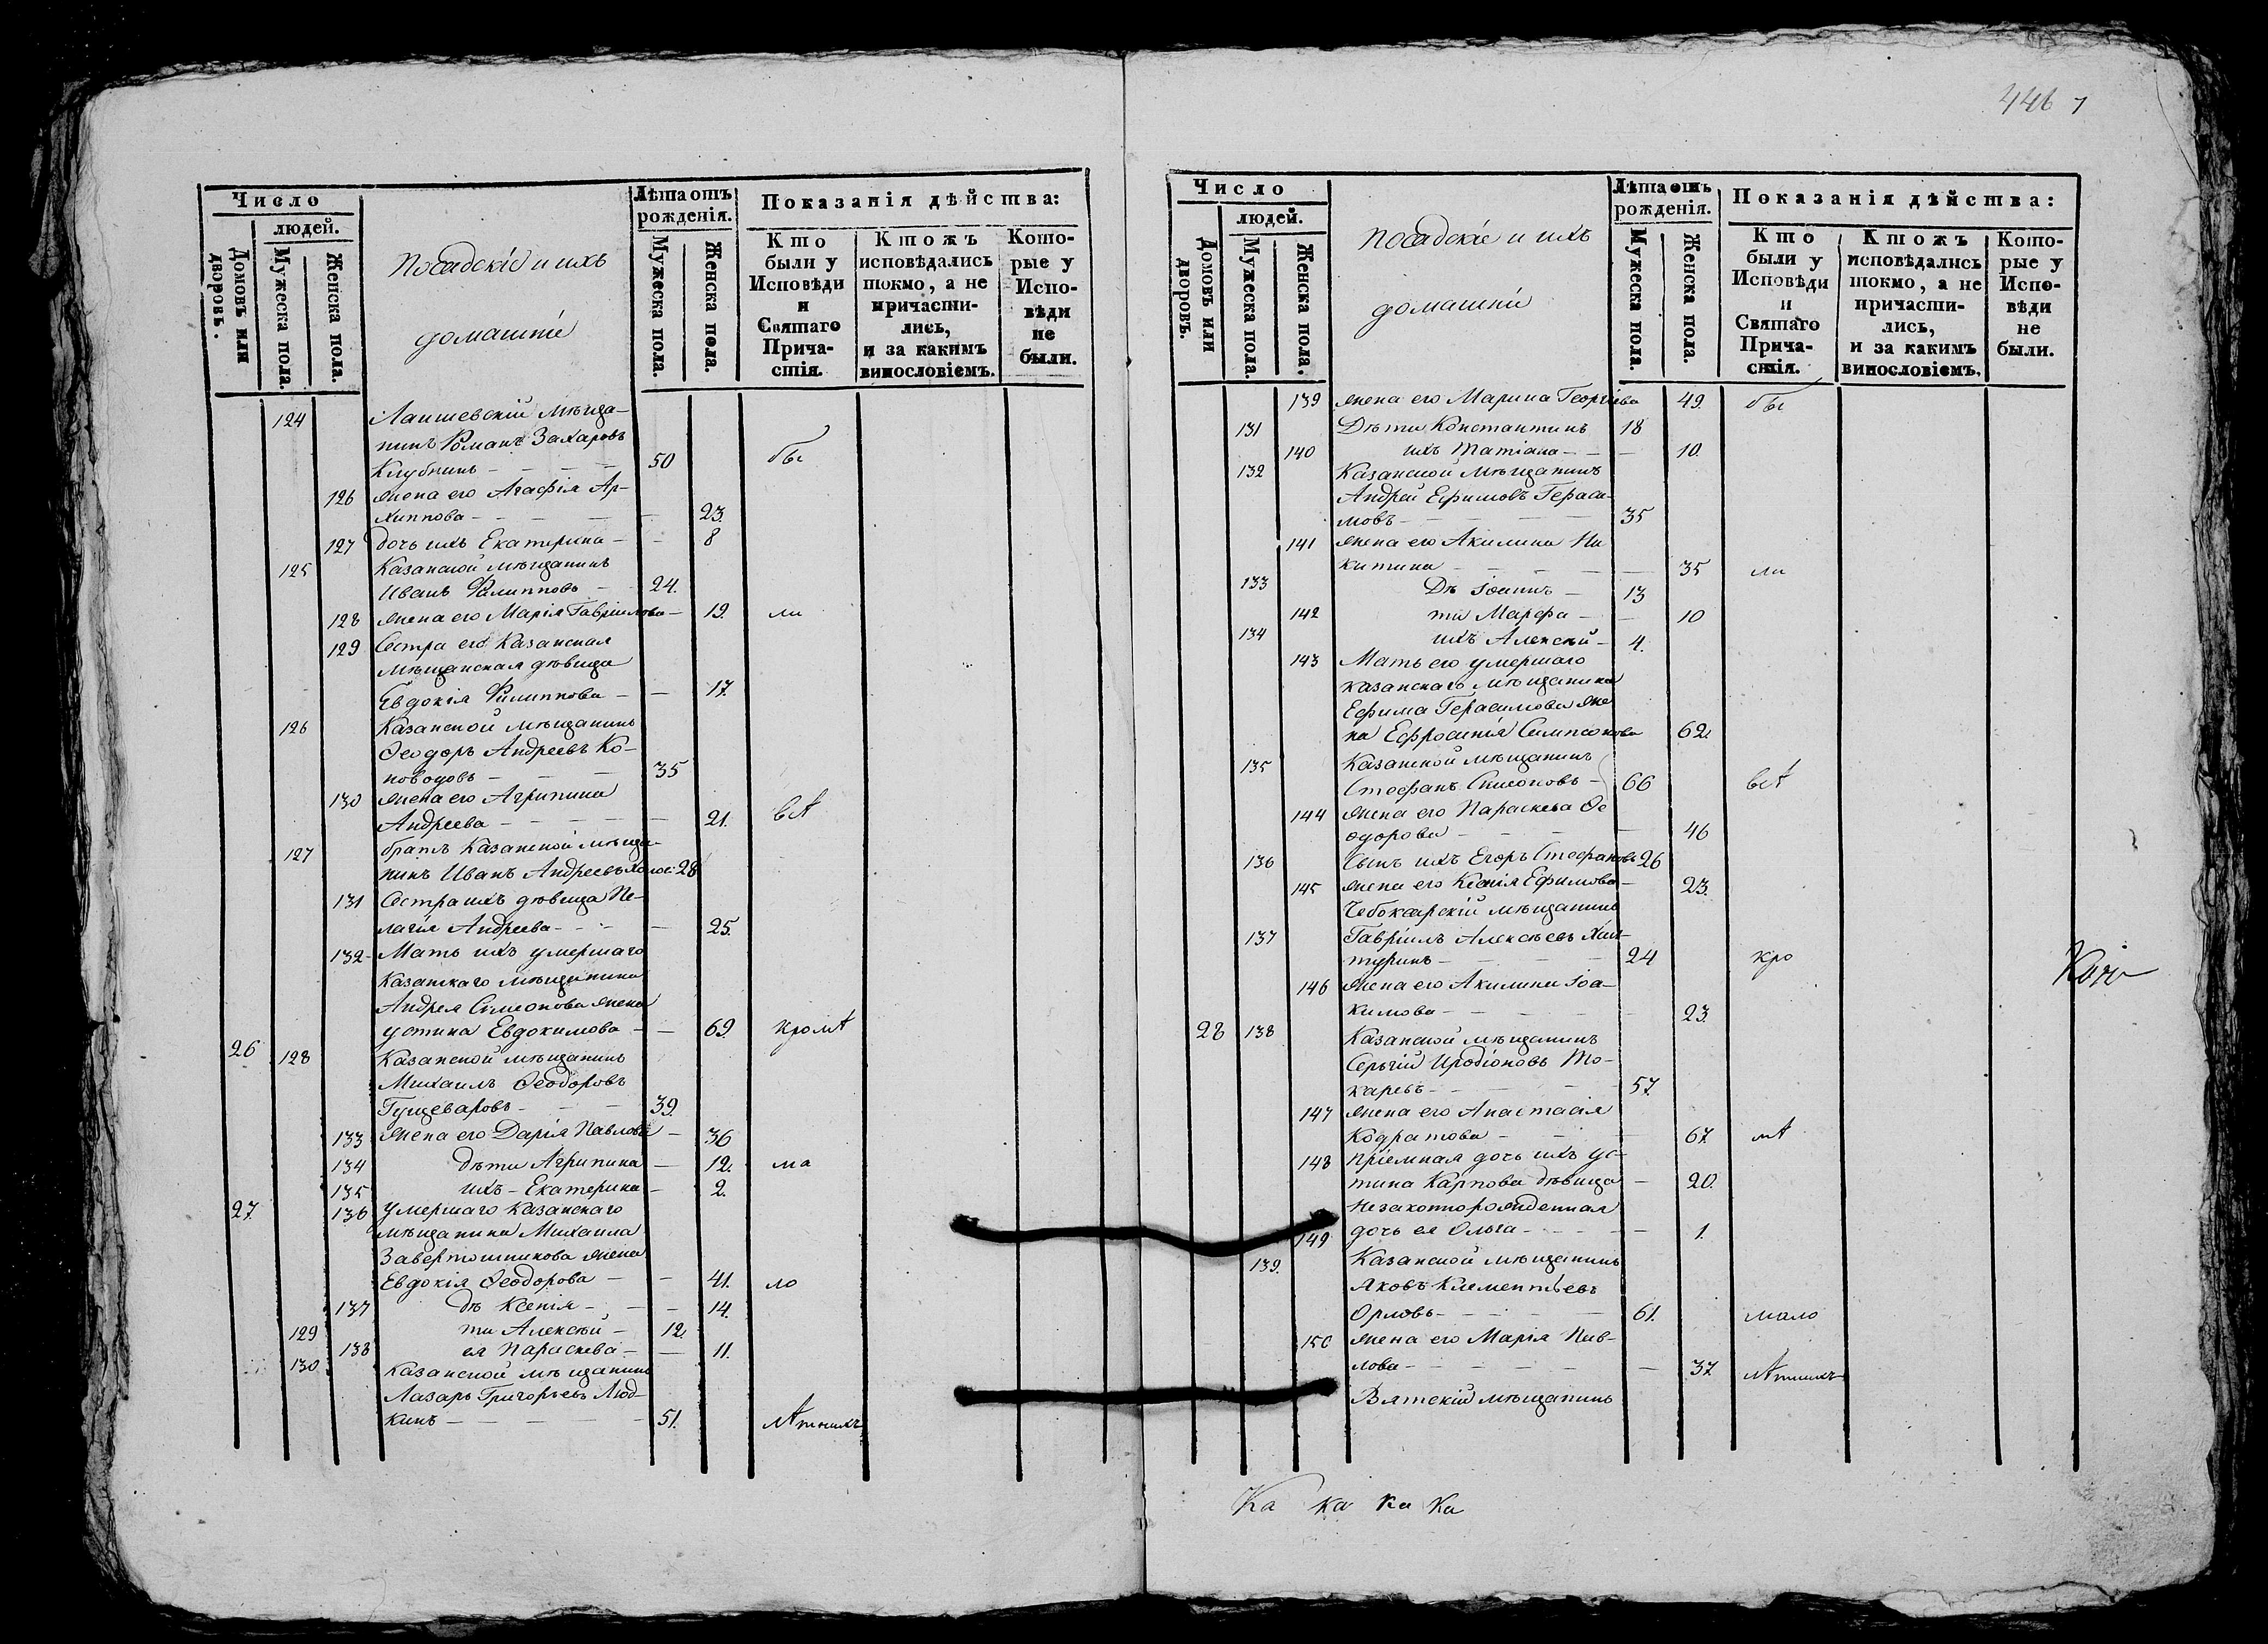 446 7
Число
людей.
Домовъ или дворовъ.
Мужеска пола.
Женска пола.
Посадскіе и ихъ
домашніе
Лѣта отъ
рожденія.
Мужеска пола.
Женска пола.
Показанія дѣйства:
Кто
были у
Исповѣди
и
Святаго
Прича-
стія.
Ктожъ
исповѣдались
токмо, а не
причасти-
лись,
и за какимъ
винословіемъ.
Кото-
рые у
Испо-
вѣди
не
были.
124 Лаишевскій мѣща-
нинъ Романъ Захаровъ
Клубнинъ - 50 бы
126 жена его Агафія Ар-
хиппова - 23.
127 дочь ихъ Екатерина - 8
125 Казанской мѣщанинъ
Иванъ Филипповъ - 24.
128 жена его Марія Гавріилова - 19. ли
129 Сестра его Казанская
мѣщанская дѣвица
Евдокія Филиппова - 17.
126 Казанской мѣщанинъ
Ѳеодоръ Андреевъ Ко-
новодовъ - 35
130 жена его Агрипина
Андреева - 21. всѣ
127 братъ Казанской мѣща-
нинъ Иванъ Андреевъ 28
131 Сестра ихъ дѣвица Пе-
лагія Андреева - 25.
132 Мать ихъ умершаго
Казанскаго мѣщанина
Андрея Симеонова жена
Устина Евдокимова - 69. кромѣ
26 128 Казанской мѣщанинъ
Михаилъ Ѳеодоровъ
Гущеваровъ - 39.
133 жена его Дарія Павлова - 36
134 дѣти Агрипина - 12. ма
135 ихъ - Екатерина - 2.
27. 136 умершаго Казанскаго
мѣщанина Михаила
Завертошникова жена
Евдокія Ѳеодорова - 41. ло
137 дѣ Ксенія - 14.
129 ти Алексѣй - 12.
138 ея Параскева - 11.
130 Казанской мѣщанинъ
Лазарь Григорьевъ Люд-
кинъ - 51. лѣтнихъ
Число
людей.
Домовъ или дворовъ.
Мужеска пола.
Женска пола.
Посадскіе и ихъ
домашніи
Лѣта отъ
рожденія.
Мужеска пола.
Женска пола.
Показанія дѣйства:
Кто
были у
Исповѣди
и
Святаго
Прича-
стія.
Ктожъ
исповѣдались
токмо, а не
причасти-
лись,
и за какимъ
винословіемъ.
Кото-
рые у
Испо-
вѣди
не
были.
139 жена его Марина Георгіева 49. бы
131 Дѣти Константинъ 18
140 ихъ Татіана - 10.
132 Казанской мѣщанинъ
Андрей Ефимовъ Гераси-
мовъ - 35
141 жена его Акилина Ни
китина - 35 ли
133 Дѣ Іоаннъ - 13
142 ти Марѳа - 10
134 ихъ Алексѣй - 4.
143 Мать его умершаго
казанскаго мѣщанина
Ефима Герасимова же
на Ефросинія Симпсонова 62.
135 Казанской мѣщанинъ
Стефанъ Симеоновъ - 66 всѣ
144 жена его Параскева Ѳе
одорова - 46
136 Сынъ ихъ Егоръ Стефановъ 26
145 жена его Ксенія Ефимова - 23.
Чебоксарскій мѣщанинъ
137 Гавріилъ Алексѣевъ Хал-
туринъ - 24 кро
146 жена его Акилина Іоа-
кимова - 23.
28 138 Казанской мѣщанинъ
Сергій Иродіоновъ То-
каревъ - 57.
147 жена его Анастасія
Кодратова - 67. мѣ
148 Пріемная дочь ихъ Ус-
тина Карпова дѣвица - 20.
Незаконнорожденная
149 дочь ея Ольга - 1.
139. Казанской мѣщанинъ
Яковъ Клементьевъ
Орловъ - 61. мало
150 жена его Марія Пав-
лова - 37 лѣтнихъ
Вятскій мѣщанинъ
Ка ка ка ка